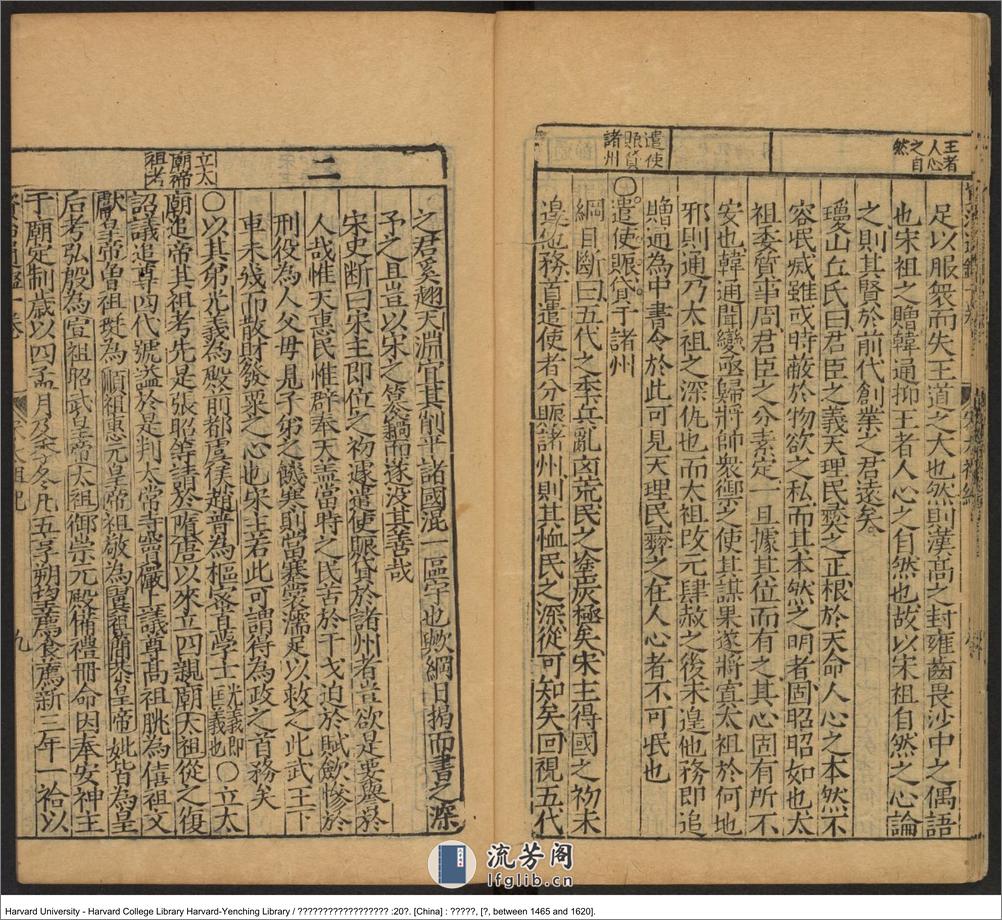 王者
人心
之自
然
足以服衆而失王道之大也然則漢高之封雍齒畏沙中之偶語
也宋祖之贈韓通抑王者人心之自然也故以宋祖自然之心論
之則其賢於前代創業之君遠矣
瓊山丘氏曰君臣之義天理民彛之正根於天命人心之本然不
容泯滅雖或時蔽於物欲之私而其本然之明者固昭昭如也太
祖委質事周君臣之分素定一旦據其位而有之其心固有所不
安也韓通聞變亟歸將帥衆御之使其謀果遂將寘太祖於何地
邪則通乃太祖之深仇也而太祖改元肆赦之後未遑他務即追
贈通為中書令於此可見天理民彛之在人心者不可泯也
遣使
賑貸
諸州
○遣使賑貸于諸州
綱目斷曰五代之季兵亂凶荒民之塗炭極矣宋主得國之初未
遑他務首遣使者分賑諸州則其恤民之深從可知矣回視五代
之君奚趐天淵宜其削平諸國混一區宇也歟綱目揭而書之深
予之且豈以宋之簒弒而遂没其善哉
二
宋史斷曰宋主即位之初遽遣使賑貸於諸州者豈欲是要與於
人哉惟天惠民惟辟奉天盖當時之民苦於干戈迫於賦歛慘於
刑役為人父母見子弟之饑寒則當褰裳濡足以救之此武王下
車未幾而散財發粟之心也宋主若此可謂得為政之首務矣
○以其弟光義為殿前都虞侯趙普為樞密直學士光義即匡義也○立太
立太
廟帝
祖考
廟追帝其祖考先是張昭等請於隋唐以來立四親廟太祖從之復
詔議追尊四代號謚於是判太常寺竇儼議尊高祖朓為僖祖文
獻皇帝曽祖珽為順祖惠元皇帝祖敬為翼祖簡恭皇帝妣皆為皇
后考弘殷為宣祖昭武皇帝太祖御崇元殿備禮冊命因奉安神主
于廟定制歲以四孟月乃季冬凡五享朔望薦食薦新三年一祫以
九
流芳阁
lfglib.cn
Harvard University - Harvard College Library Harvard-Yenching Library / ?????????????????? :20?. [China] : ?????, [?, between 1465 and 1620].